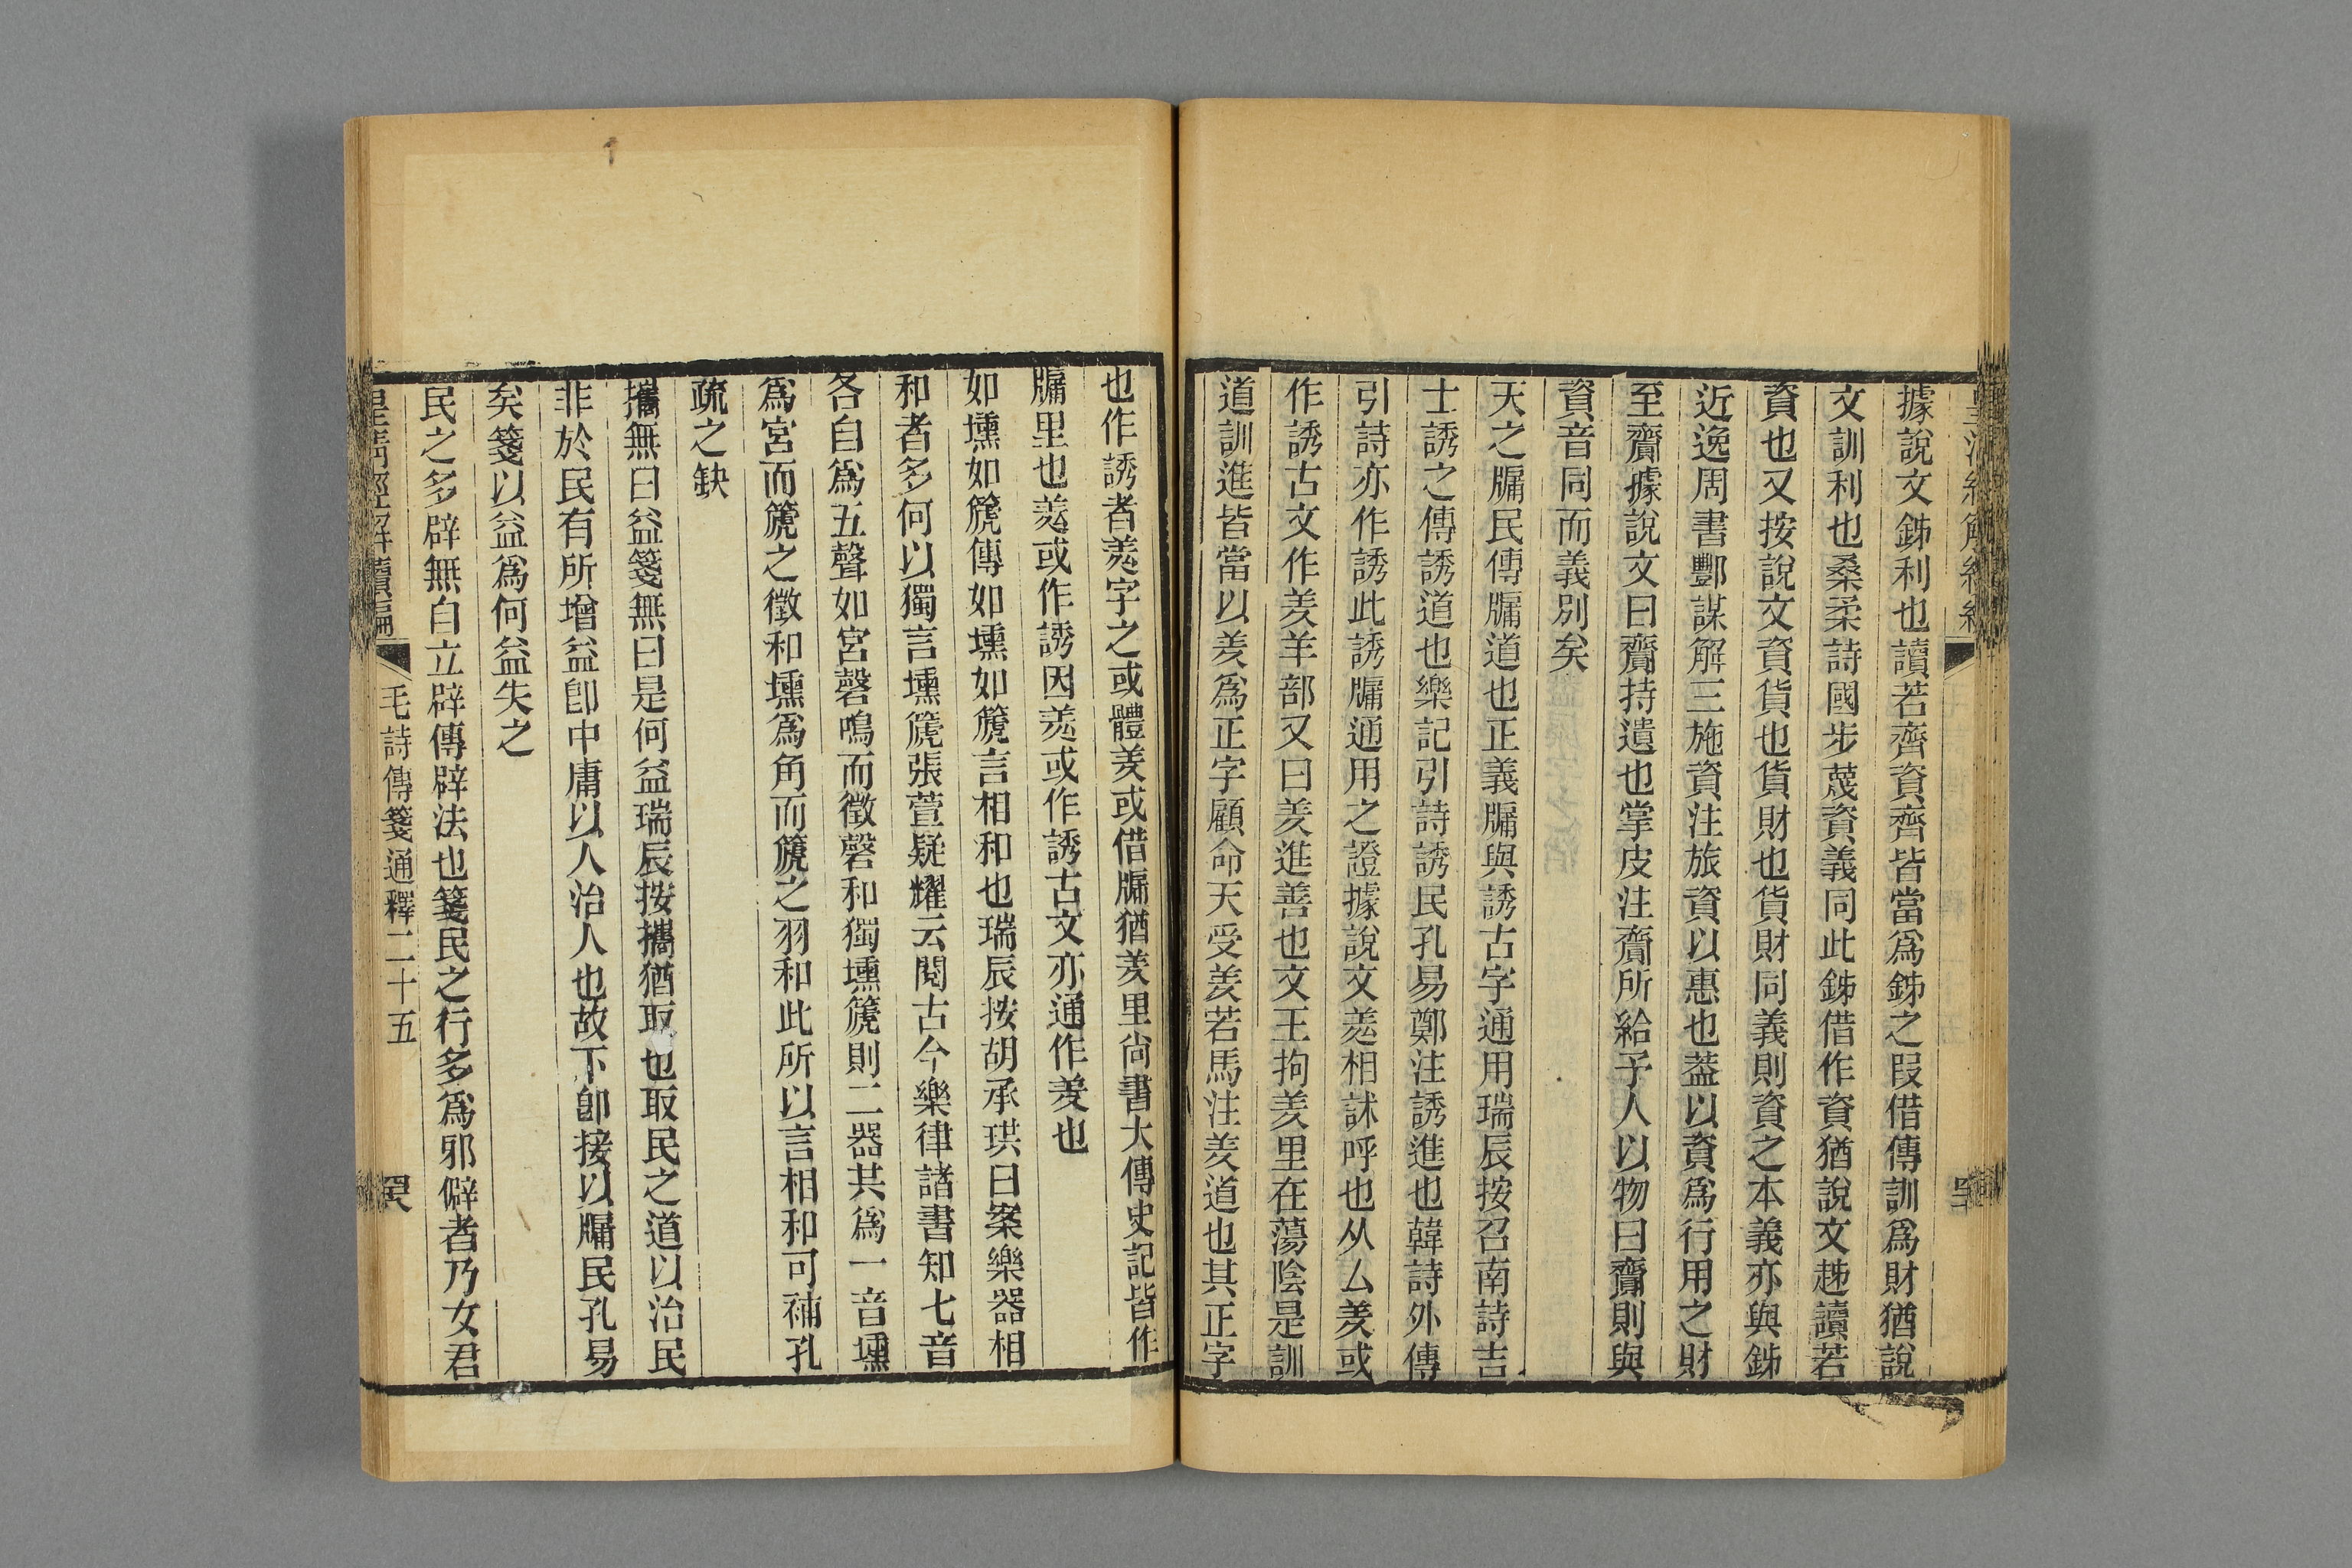 據說文䥍利也讀若齊資齊皆當爲䥍之叚借傳訓爲財猶說
文訓利也桑柔詩國步蔑資義同此䥍借作資猶說文趀讀若
資也又按說文資貨也貨財也貨財同義則資之本義亦與䥍
近逸周書酆謀解三施資注旅資以惠也葢以資爲行用之財
至齎據說文曰齎持遺也掌皮注齎所給予人以物曰齎則與
資音同而義別矣
天之牖民傳牖道也正義牖與誘古字通用瑞辰按召南詩吉
士誘之傳誘道也樂記引詩誘民孔易鄭注誘進也韓詩外傳
引詩亦作誘此誘牖通用之證據說文羑相訹呼也从厶羑或
作誘古文作羑羊部又曰羑進善也文王拘羑里在蕩陰是訓
道訓進皆當以羑爲正字顧命天受羑若馬注羑道也其正字
也作誘者羑字之或體羑或借牖猶羑里尙書大傳史記皆作
牖里也羑或作誘因羑或作誘古文亦通作羑也
如壎如篪傳如壎如篪言相和也瑞辰按胡承珙曰案樂器相
和者多何以獨言壎篪張萱疑耀云閱古今樂律諸書知七音
各自爲五聲如宮磬鳴而徵磬和獨壎篪則二器其爲一音壎
爲宮而篪之徵和壎爲角而篪之羽和此所以言相和可補孔
疏之缺
攜無曰益箋無曰是何益瑞辰按攜猶取也取民之道以治民
非於民有所增益卽中庸以人治人也故下卽接以牖民孔易
矣箋以益爲何益失之
民之多辟無自立辟傳辟法也箋民之行多爲邪僻者乃女君
皇淸經解續編 毛詩傳箋通釋二十五